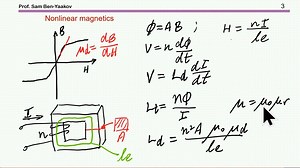 Prof. Sam Ben-Yaakov
3
Nonlinear magnetics
B
H
μd = dB/dH
I
n
A
le
Φ = AB ; H = nI/le
V = n dΦ/dt
V = Ld dI/dt
Lt = nΦ/I
μ = μo μr
Ld = n²A μo μd/le